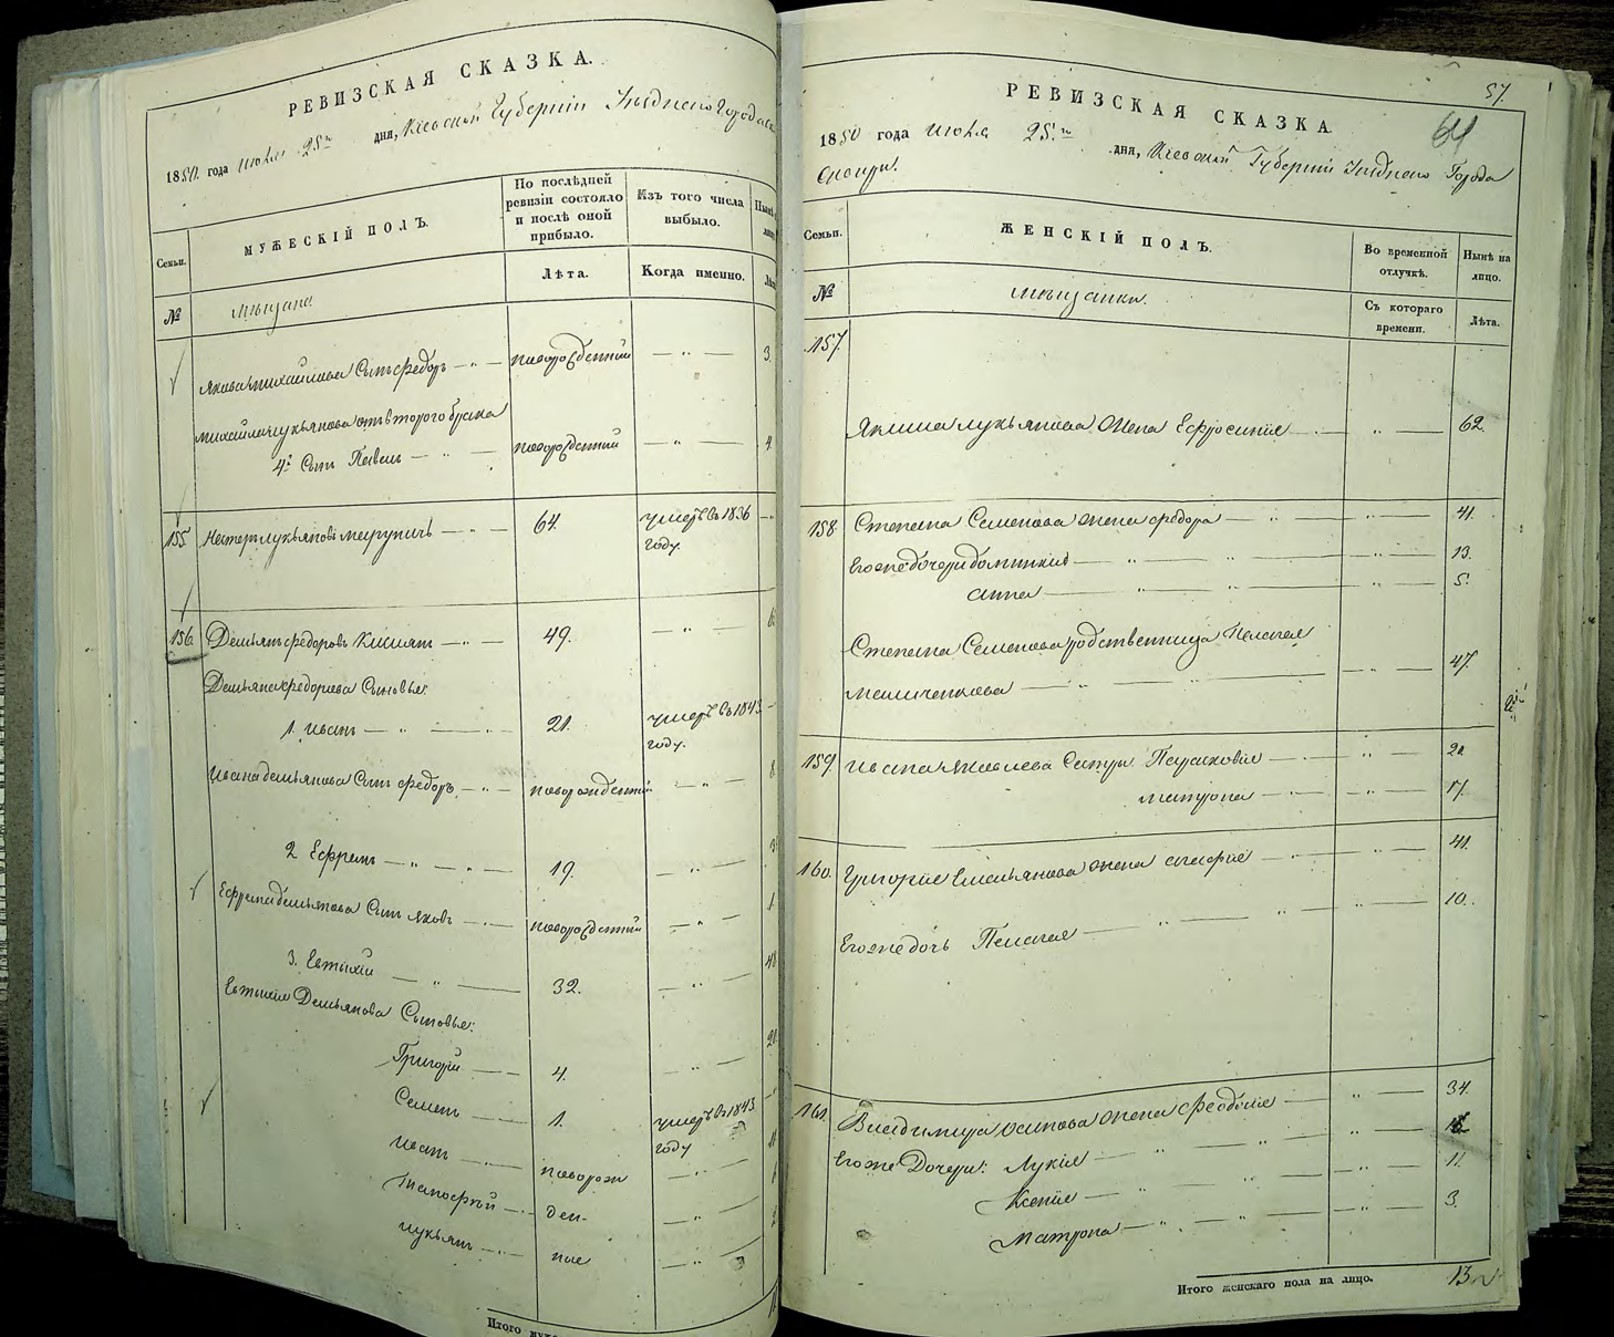 РЕВИЗСКАЯ СКАЗКА.
1850 года июля 25го дня, Кіевской Губерніи Уѣзднаго Города
МУЖЕСКІЙ ПОЛЪ.
По послѣдней ревизіи состояло и послѣ оной прибыло.
Изъ того числа выбыло.
Семьи.
Лѣта.
Когда именно.
№
мѣщане
Якова Михайлова Сынъ Федоръ новорожденный 3.
Михайла Лукьянова отъ второго брака
4й Сынъ Павелъ новорожденный 4
155 Нестеръ Лукьяновъ 64. умеръ въ 1836
году.
156 Демьянъ Федоровъ 49.
Демьяна Федорова Сыновья:
1. Иванъ 21. умеръ въ 1843
году.
Ивана Демьянова Сынъ Федоръ новорожденный
2 Ефремъ 19.
Ефрема Демьянова Сынъ Яковъ новорожденный
3. Евтихій 32.
Евтихія Демьянова Сыновья:
Григорій 4.
Семенъ 1. умеръ въ 1843
году
Иванъ новорож
Тимофѣй ден-
Лукьянъ ные
Итого
57.
РЕВИЗСКАЯ СКАЗКА.
1850 года июля 25.го дня, Кіевской Губерніи Уѣзднаго Города
Сквиры.
Семьи.
ЖЕНСКІЙ ПОЛЪ.
Во временной отлучкѣ.
Нынѣ на лицо.
№
мѣщанки.
Съ котораго времени.
Лѣта.
157.
Якима Лукьянова жена Ефросинія 62.
158 Степана Семенова жена Федора 41.
Его же дочери Домникія 13.
Анна 5.
Степана Семенова родственница Пелагея
47.
159 Ивана Яковлева Сестры Парасковія 20.
Матрона 17.
160. Григорія Емельянова жена Агафія 41.
Его же дочь Пелагея 10.
161. Владимира Осипова жена Феодосія 34.
Его же Дочери: Лукія
Ксенія 11.
Матрона 3.
Итого женскаго пола на лицо. 13